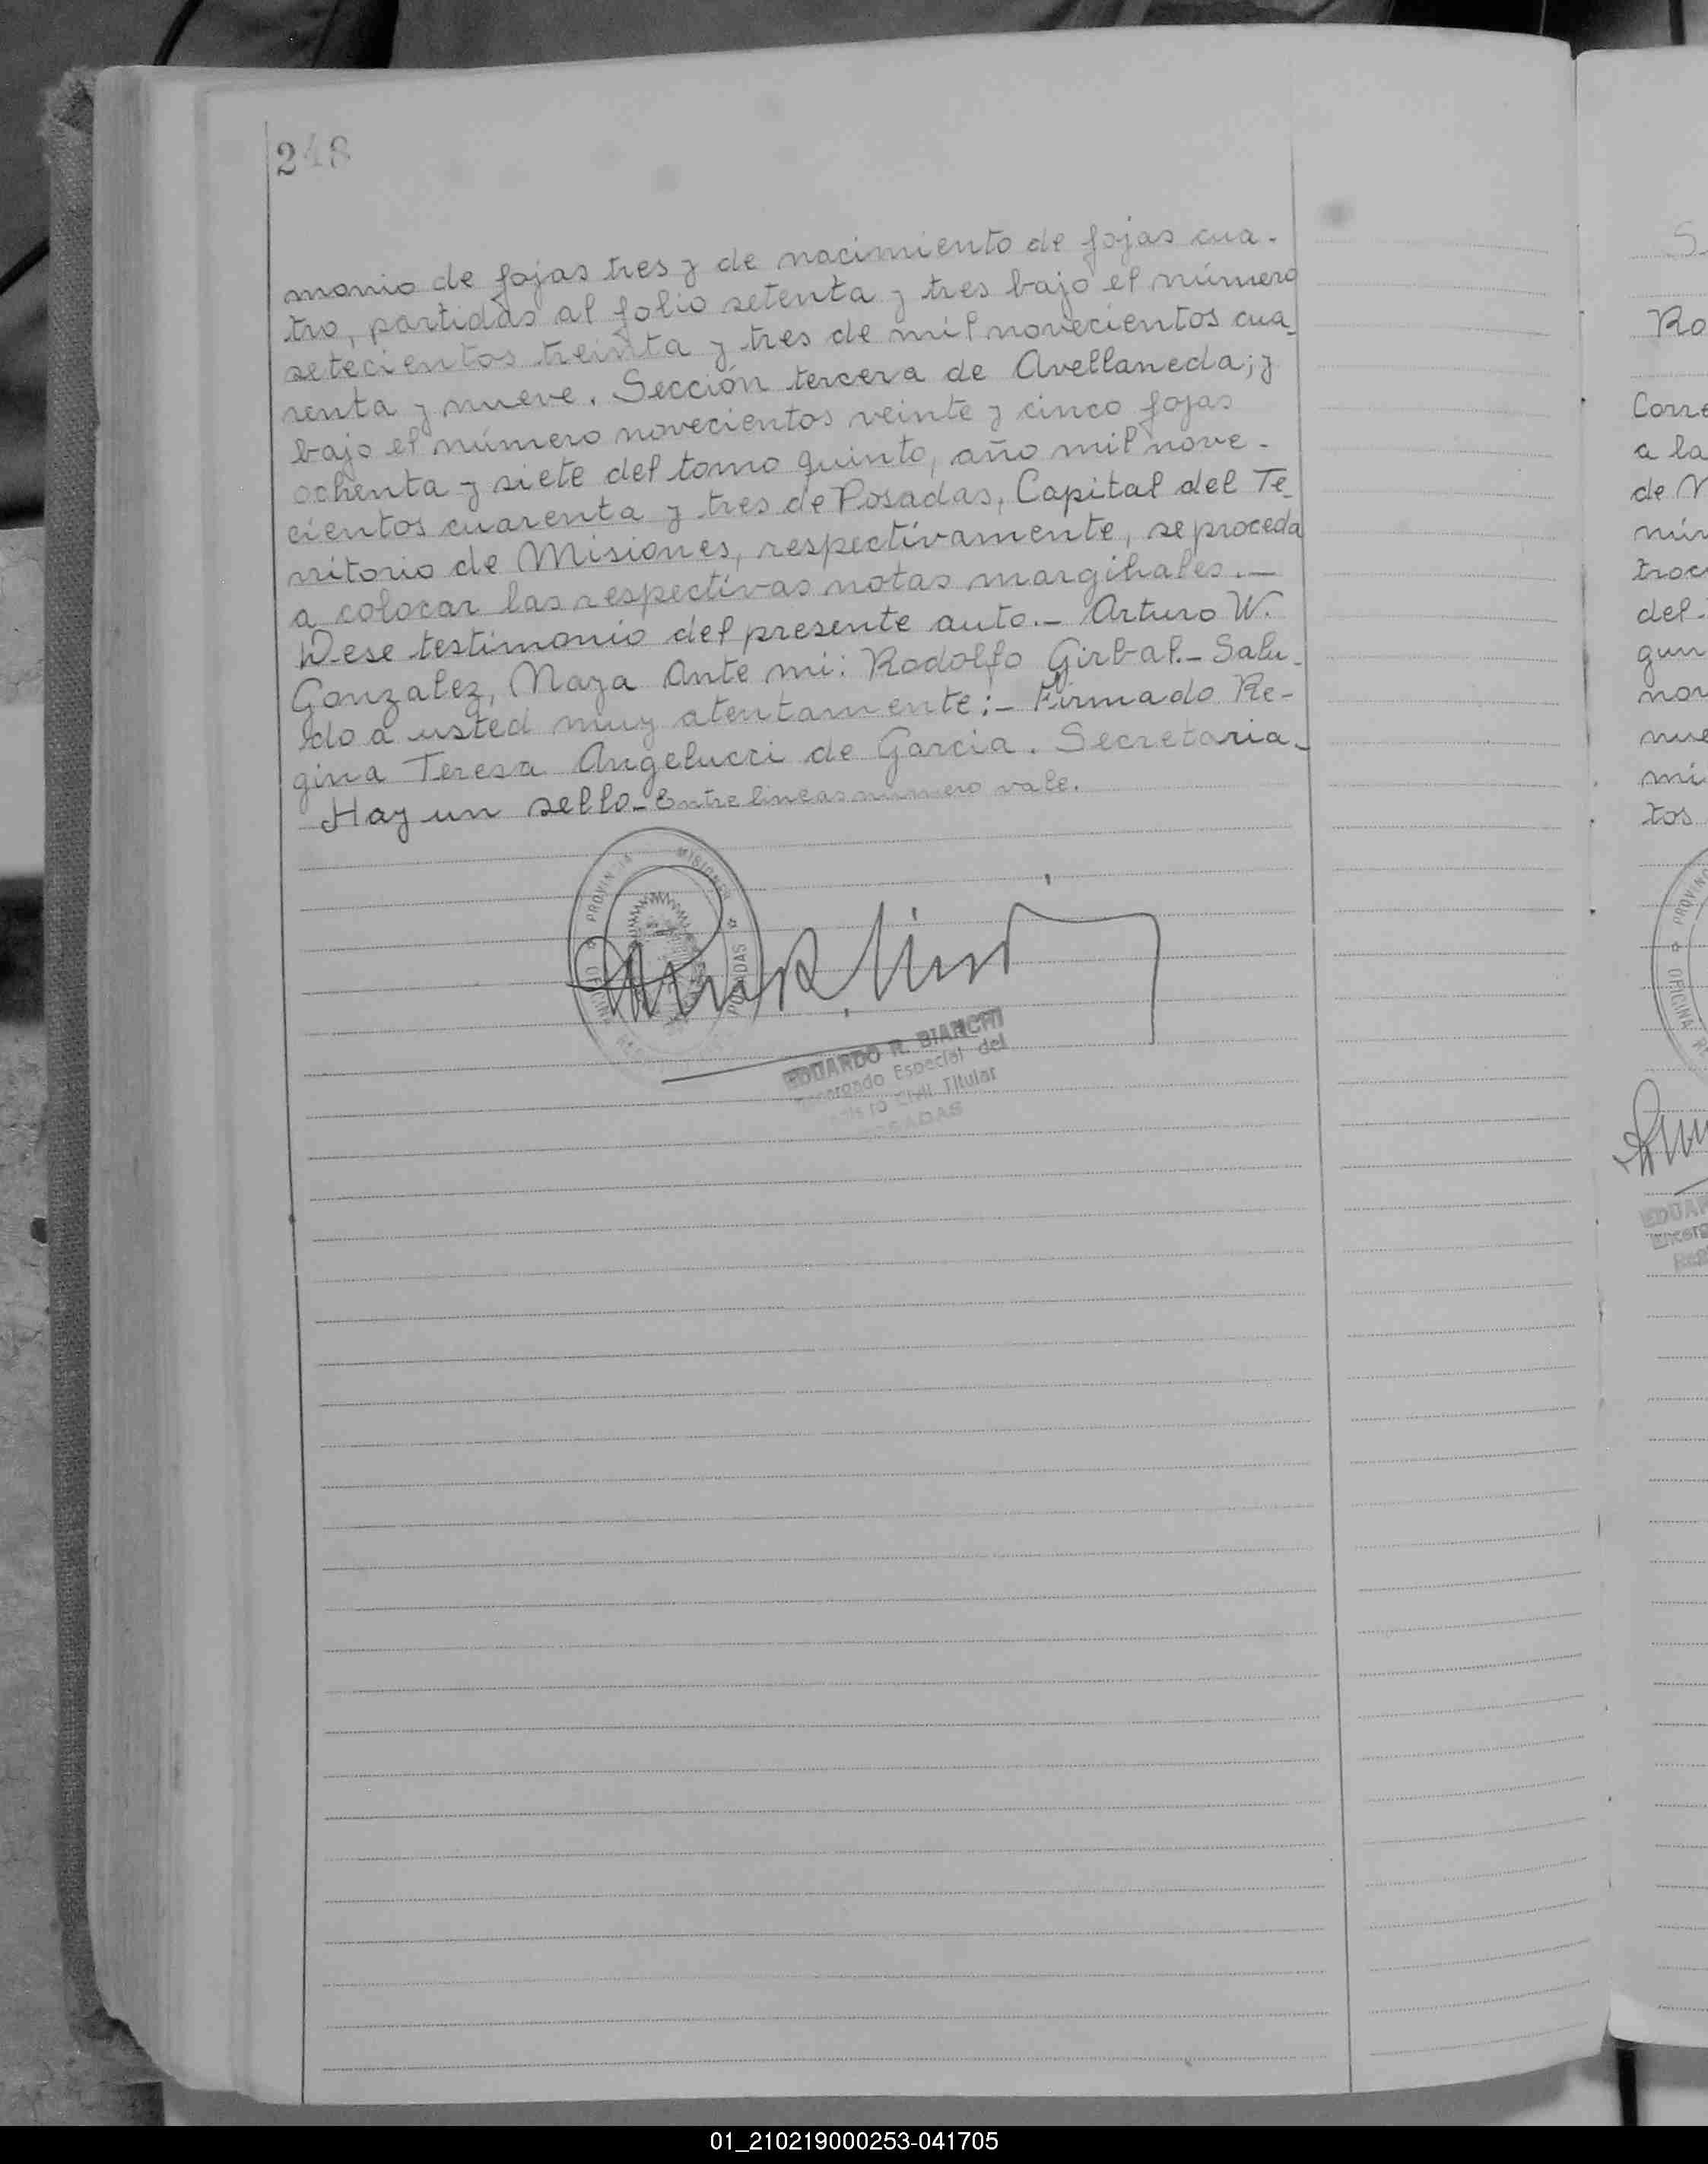 248
monio de fojas tres y de nacimiento de fojas cua-
tro, partidas al folio setenta y tres bajo el número
setecientos treinta y tres de mil novecientos cua-
renta y nueve. Sección tercera de Avellaneda; y
bajo el número novecientos veinte y cinco fojas
ochenta y siete del tomo quinto, año mil nove-
cientos cuarenta y tres de Posadas, Capital del Te-
rritorio de Misiones, respectivamente, se proceda
a colocar las respectivas notas marginales.—
Dese testimonio del presente auto.- Arturo W.
Gonzalez, Naya Ante mi: Rodolfo Girbal.- Salu-
do a usted muy atentamente:- Firmado Re-
gina Teresa Angelucci de Garcia. Secretaria.-
Hay un sello.- Entre lineas número vale.
PROVINCIA MISIONES
OFICINA POSADAS
EDUARDO R. BIANCHI
Encargado Especial del
Registro Civil Titular
POSADAS
Ro
Corre
a la
de
del
mi
tos
PROVINC
OFICINA
EDUAR
Encarg
01_210219000253-041705